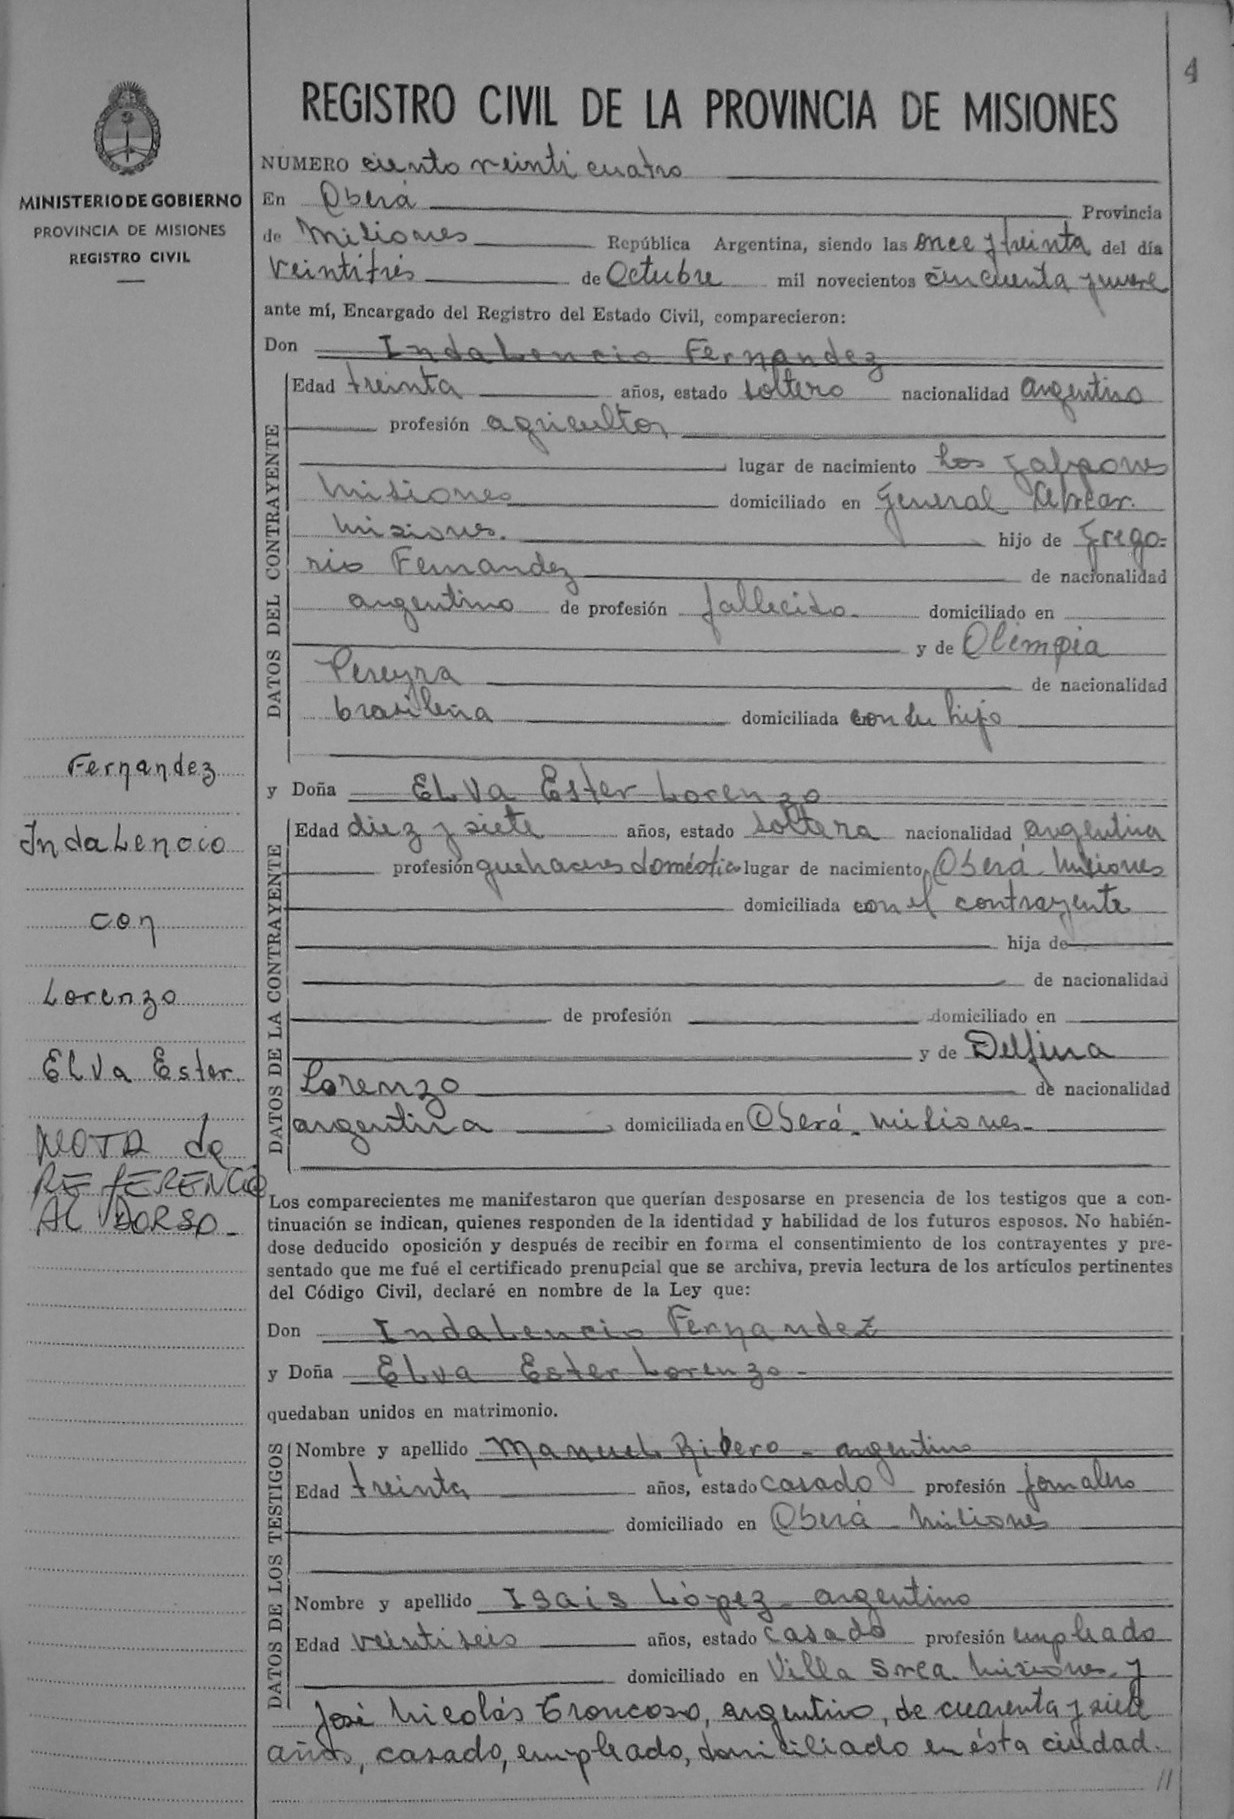 4
REGISTRO CIVIL DE LA PROVINCIA DE MISIONES
MINISTERIO DE GOBIERNO
PROVINCIA DE MISIONES
REGISTRO CIVIL
NUMERO ciento veinti cuatro
En Oberá Provincia
de Misiones República Argentina, siendo las once y treinta del día
Veintitrés de Octubre mil novecientos cincuenta y nueve
ante mí, Encargado del Registro del Estado Civil, comparecieron:
Don IndaLencio Fernandez
DATOS DEL CONTRAYENTE
Edad treinta años, estado soltero nacionalidad argentino
profesión agricultor
lugar de nacimiento Los Galpones
Misiones domiciliado en General Alvear.
Misiones. hijo de Grego-
rio Fernandez de nacionalidad
argentino de profesión fallecido. domiciliado en
y de Olimpia
Pereyra de nacionalidad
brasileña domiciliada con su hijo
y Doña ELVa Ester Lorenzo
DATOS DE LA CONTRAYENTE
Edad diez y siete años, estado soltera nacionalidad argentina
profesión quehaceres domésticos lugar de nacimiento Oberá. Misiones
domiciliada con el contrayente
hija de
de nacionalidad
de profesión domiciliado en
y de Delfina
Lorenzo de nacionalidad
argentina domiciliada en Oberá - Misiones -
Los comparecientes me manifestaron que querían desposarse en presencia de los testigos que a con-
tinuación se indican, quienes responden de la identidad y habilidad de los futuros esposos. No habién-
dose deducido oposición y después de recibir en forma el consentimiento de los contrayentes y pre-
sentado que me fué el certificado prenupcial que se archiva, previa lectura de los artículos pertinentes
del Código Civil, declaré en nombre de la Ley que:
Don IndaLencio Fernandez
y Doña ELva Ester Lorenzo -
quedaban unidos en matrimonio.
DATOS DE LOS TESTIGOS
Nombre y apellido Manuel Ribero - argentino
Edad treinta años, estado casado profesión jornalero
domiciliado en Oberá - Misiones
Nombre y apellido Isais López - argentino
Edad veintiseis años, estado casado profesión empleado
domiciliado en Villa Svea. Misiones. y
José Nicolás Troncoso, argentino, de cuarenta y siete
años, casado, empleado, domiciliado en ésta ciudad.
//
Fernandez
IndaLencio
con
Lorenzo
ELVa Ester
NOTA de
REFERENCIA
AL DORSO -